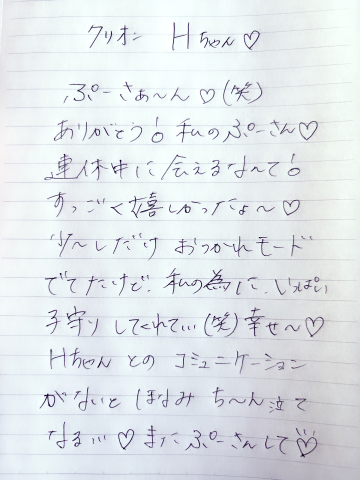 クリオン Hちゃん♡
ぷーさぁ〜ん♡(笑)
ありがとう! 私のぷーさん♡
連休中に会えるなんて!
すっごく嬉しかったよ〜♡
少〜しだけ おつかれモード
でてたけど、私の為に、いっぱい
子守り してくれて…(笑)幸せ〜♡
Hちゃん との コミュニケーション
がないと ほなみ ち〜ん 泣て
なる…♡ また ぷーさんして♡